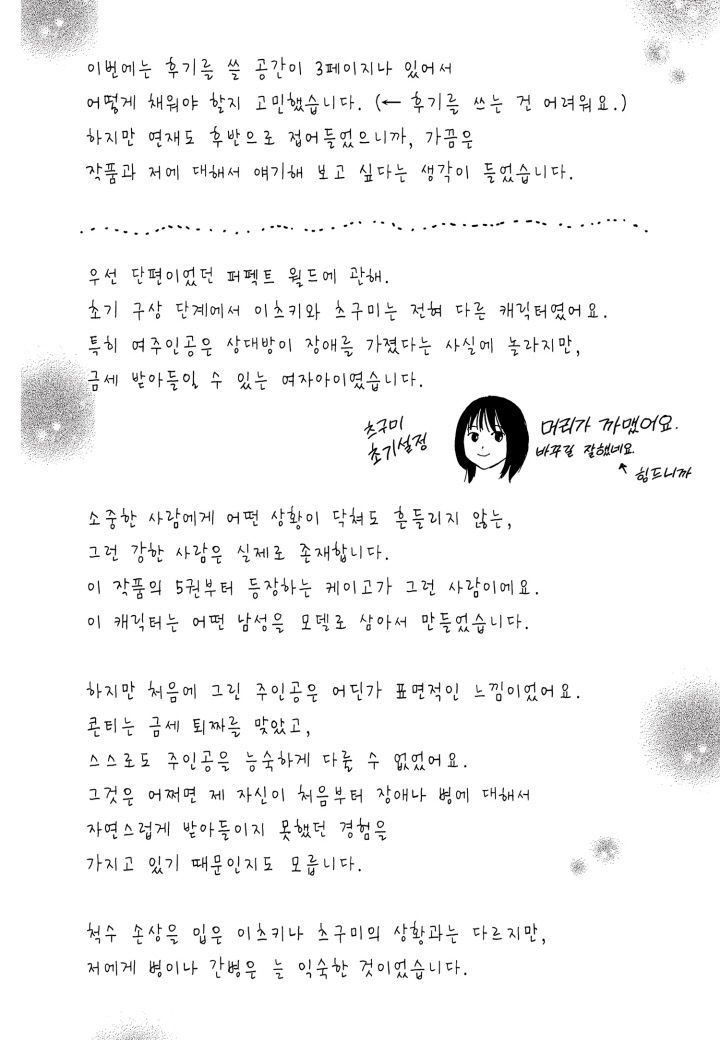 이번에는 후기를 쓸 공간이 3페이지나 있어서
어떻게 채워야 할지 고민했습니다. (← 후기를 쓰는 건 어려워요.)
하지만 연재도 후반으로 접어들었으니까, 가끔은
작품과 저에 대해서 얘기해 보고 싶다는 생각이 들었습니다.
우선 단편이었던 퍼펙트 월드에 관해.
초기 구상 단계에서 이츠키와 츠구미는 전혀 다른 캐릭터였어요.
특히 여주인공은 상대방이 장애를 가졌다는 사실에 놀라지만,
금세 받아들일 수 있는 여자아이였습니다.
츠구미
초기설정
머리가 까맸어요.
바꾸길 잘했네요.
↖ 힘드니까
소중한 사람에게 어떤 상황이 닥쳐도 흔들리지 않는,
그런 강한 사람은 실제로 존재합니다.
이 작품의 5권부터 등장하는 케이고가 그런 사람이에요.
이 캐릭터는 어떤 남성을 모델로 삼아서 만들었습니다.
하지만 처음에 그린 주인공은 어딘가 표면적인 느낌이었어요.
콘티는 금세 퇴짜를 맞았고,
스스로도 주인공을 능숙하게 다룰 수 없었어요.
그것은 어쩌면 제 자신이 처음부터 장애나 병에 대해서
자연스럽게 받아들이지 못했던 경험을
가지고 있기 때문인지도 모릅니다.
척수 손상을 입은 이츠키나 츠구미의 상황과는 다르지만,
저에게 병이나 간병은 늘 익숙한 것이었습니다.